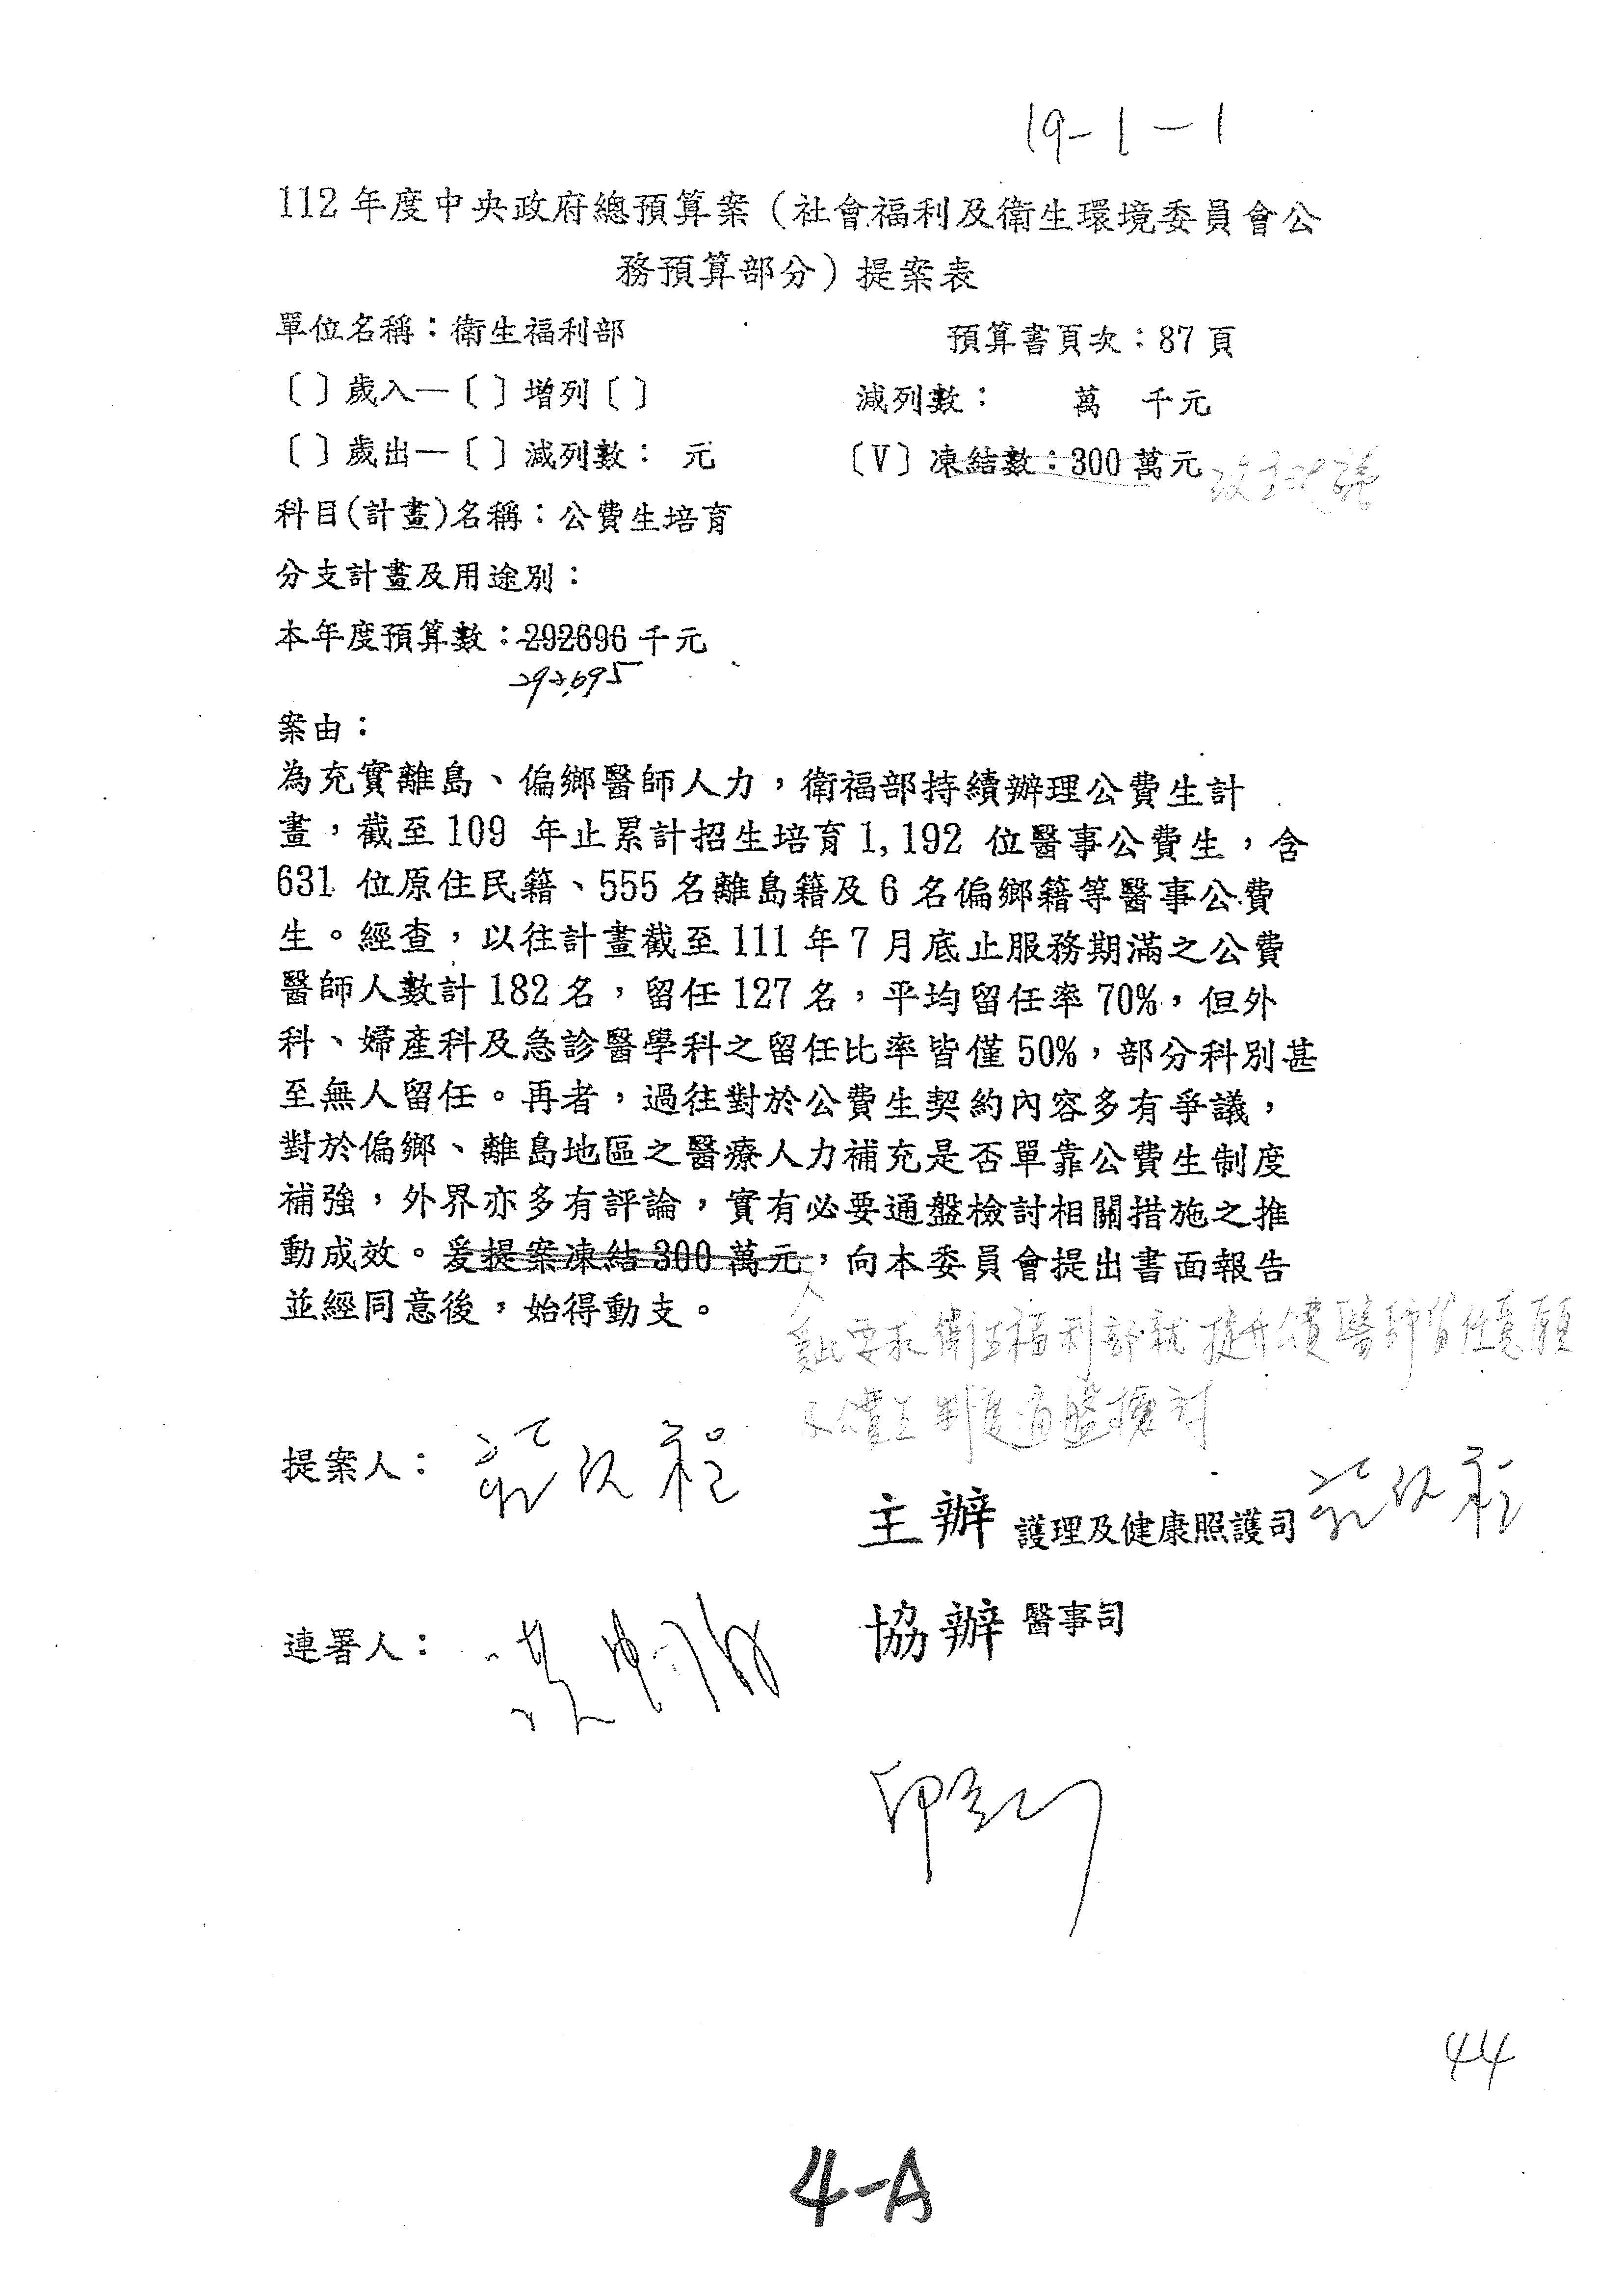 19-1-1
112年度中央政府總預算案（社會福利及衛生環境委員會公
務預算部分）提案表
單位名稱：衛生福利部
預算書頁次：87頁
〔〕歲入—〔〕增列〔〕
減列數： 萬 千元
〔〕歲出—〔〕減列數： 元
〔V〕凍結數：300萬元 改主決議
科目(計畫)名稱：公費生培育
分支計畫及用途別：
本年度預算數：292696千元
292,695
案由：
為充實離島、偏鄉醫師人力，衛福部持續辦理公費生計
畫，截至109 年止累計招生培育1,192 位醫事公費生，含
631 位原住民籍、555名離島籍及6名偏鄉籍等醫事公費
生。經查，以往計畫截至111年7月底止服務期滿之公費
醫師人數計182名，留任127名，平均留任率70%，但外
科、婦產科及急診醫學科之留任比率皆僅50%，部分科別甚
至無人留任。再者，過往對於公費生契約內容多有爭議，
對於偏鄉、離島地區之醫療人力補充是否單靠公費生制度
補強，外界亦多有評論，實有必要通盤檢討相關措施之推
動成效。爰提案凍結300萬元，向本委員會提出書面報告
並經同意後，始得動支。
爰此要求衛生福利部就提升公費醫師留任意願
及公費生制度通盤檢討
提案人：
主辦 護理及健康照護司
連署人：
協辦 醫事司
44
4-A